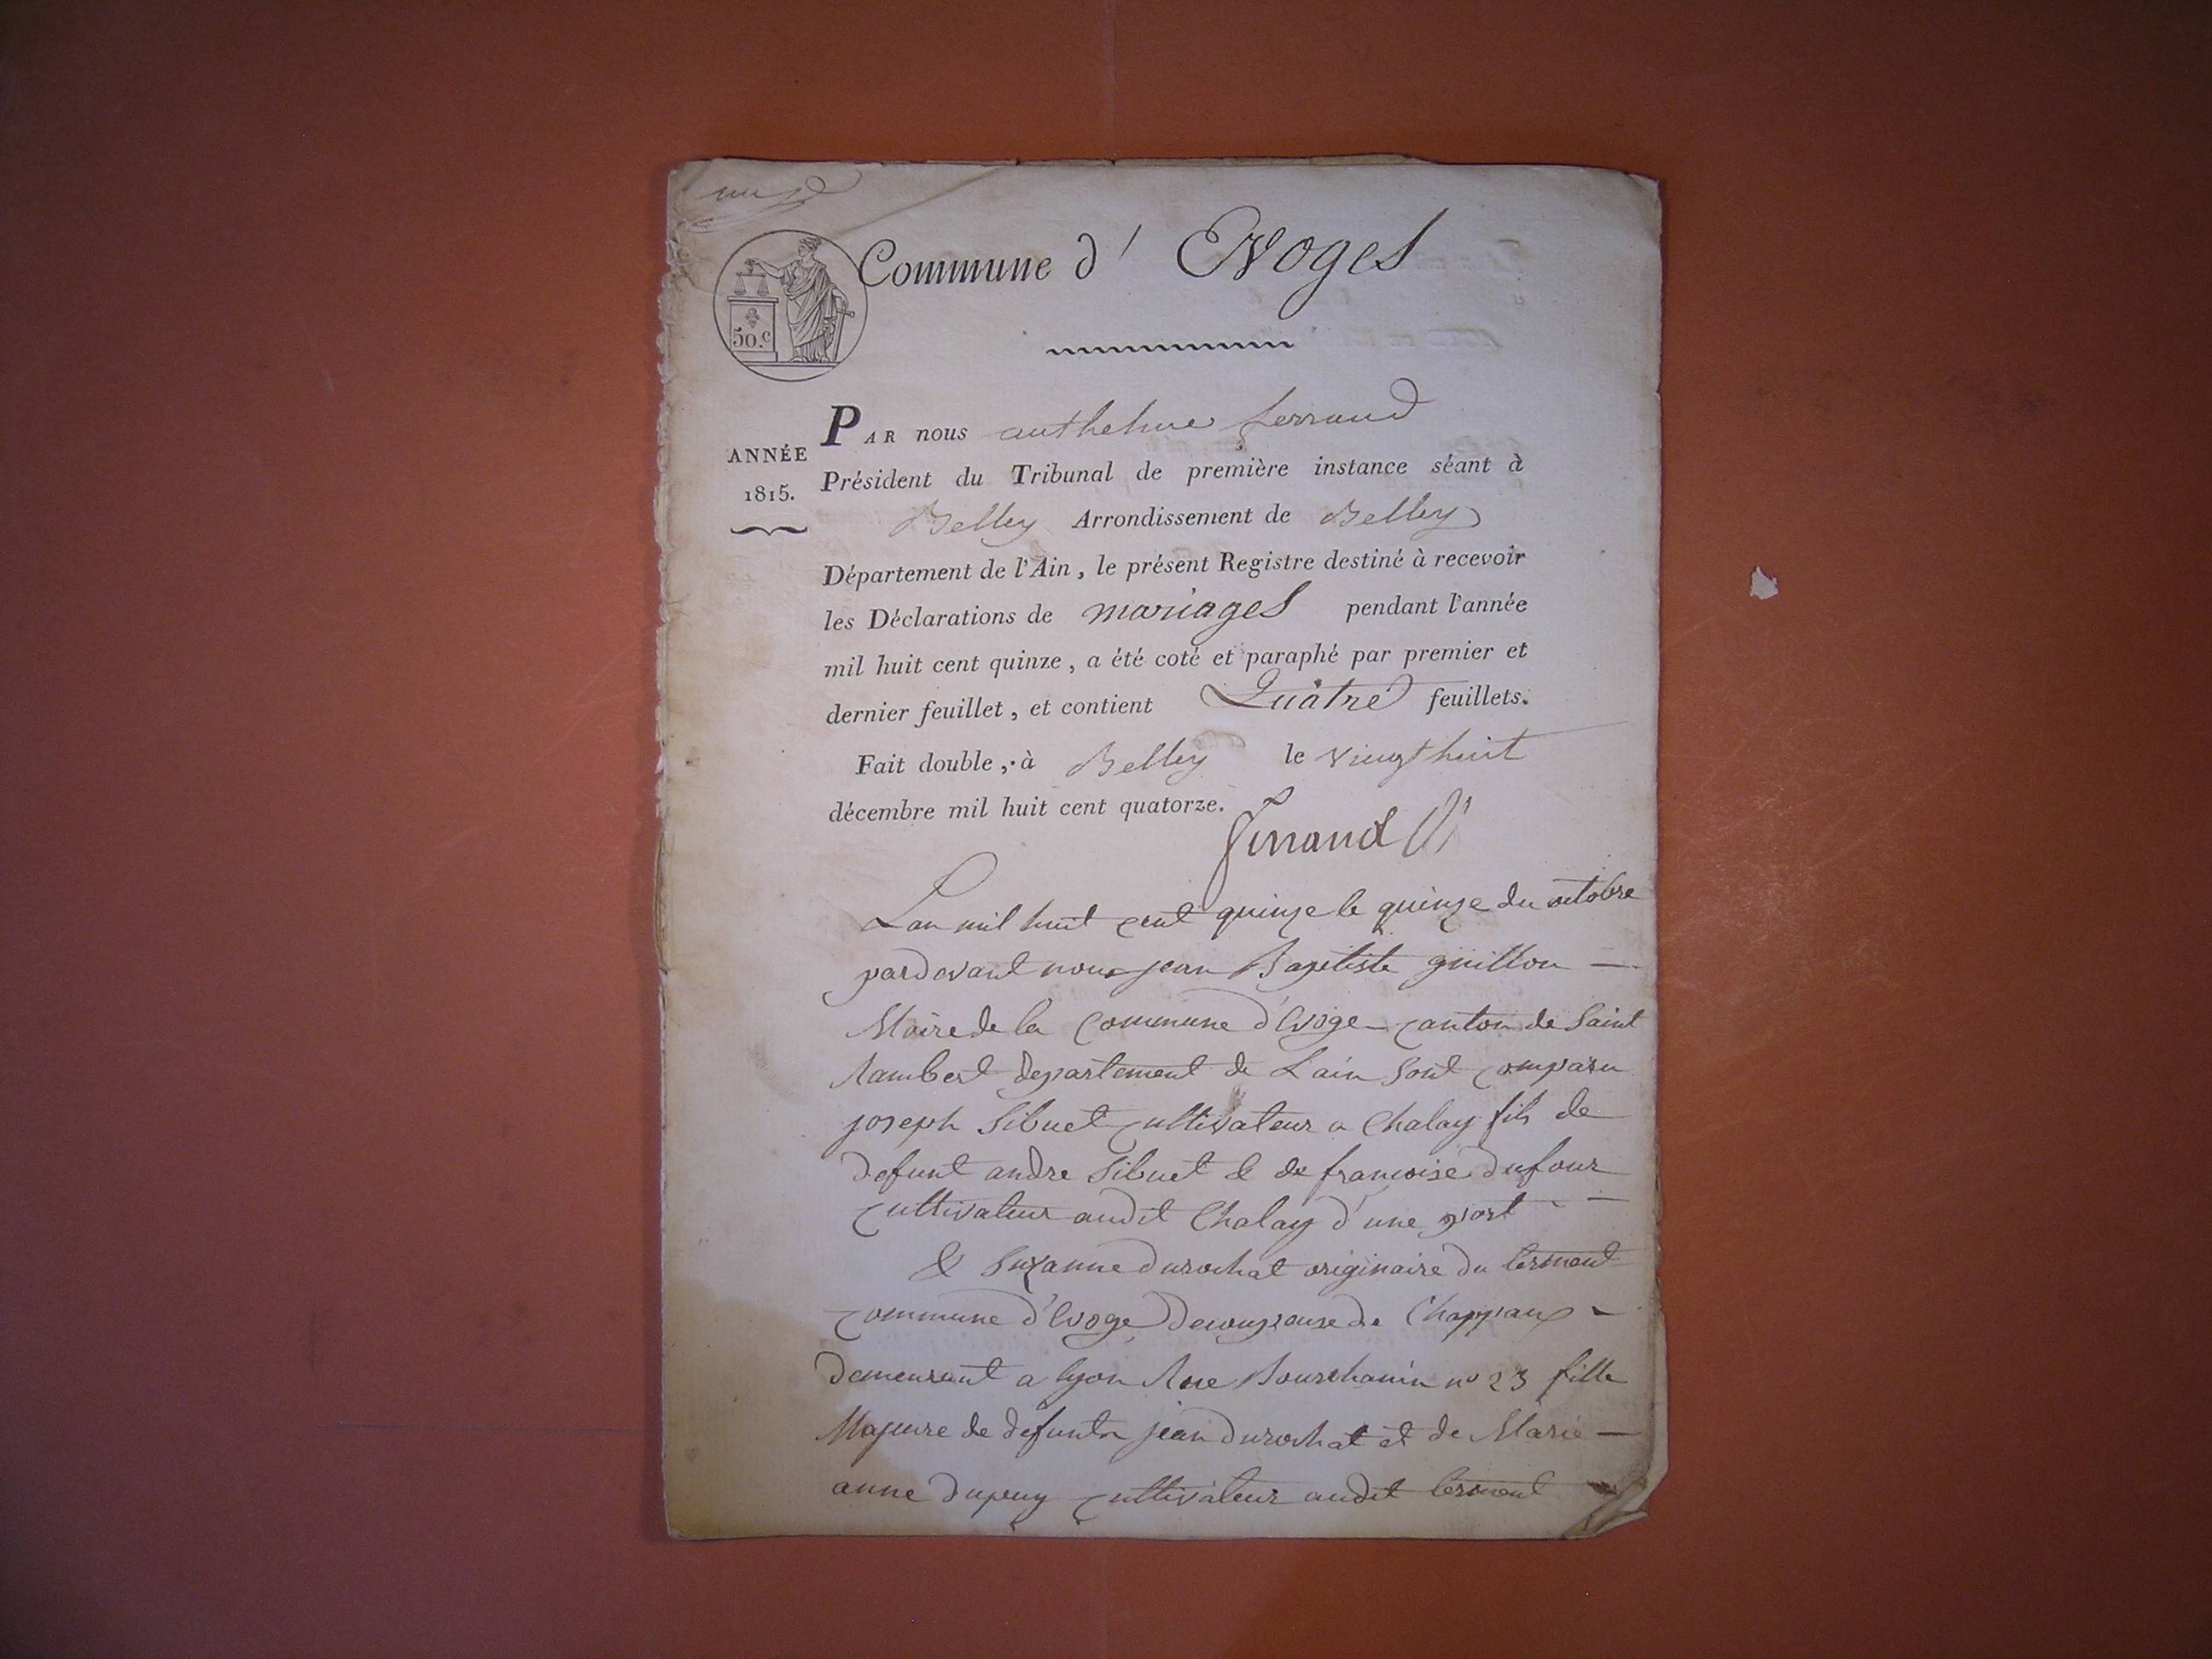 Commune d' Evoges
50.c
ANNÉE
1815.
PAR nous anthelme ferrand
Président du Tribunal de première instance séant à
Belley Arrondissement de Belley
Département de l'Ain, le présent Registre destiné à recevoir
les Déclarations de mariages pendant l'année
mil huit cent quinze, a été coté et paraphé par premier et
dernier feuillet, et contient Quatre feuillets.
Fait double, à Belley le vingt huit
décembre mil huit cent quatorze.
ferrand
Lan mil huit cent quinze le quinze du octobre
pardevant nous jean Baptiste guillon
Maire de la Commune d'Evoge canton de Saint
Rambert departement de Lain sont comparu
joseph Sibuet cultivateur a Chalay fils de
defunt andre Sibuet & de francoise dufour
cultivateur audit Chalay d'une part
& Suzanne durochat originaire du lermont
commune d'Evoge decoupeuse de Chappaux
demeurant a lyon Rue Bourchanin no 23 fille
Majeure de defunts jean durochat et de Marie
anne dupuy cultivateur audit lermont